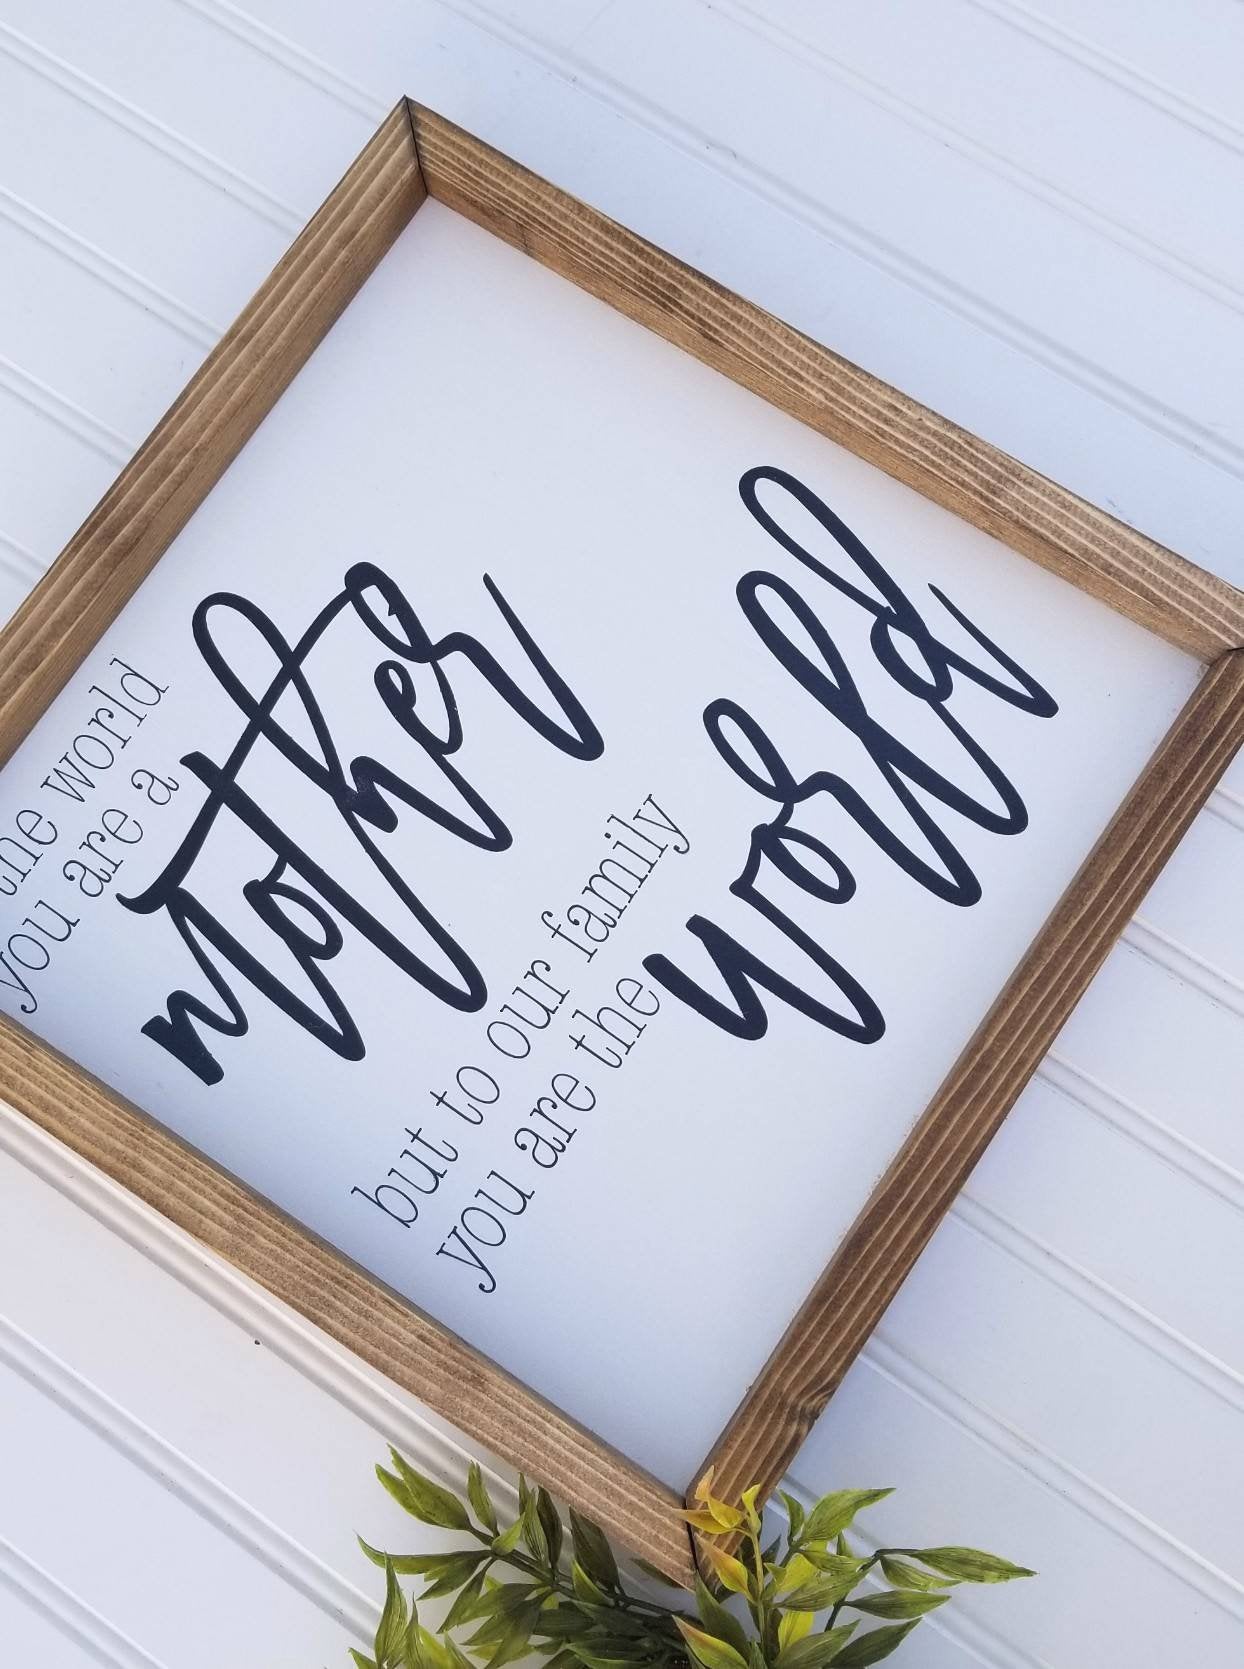 the world
you are a
mother
but to our family
you are the
world